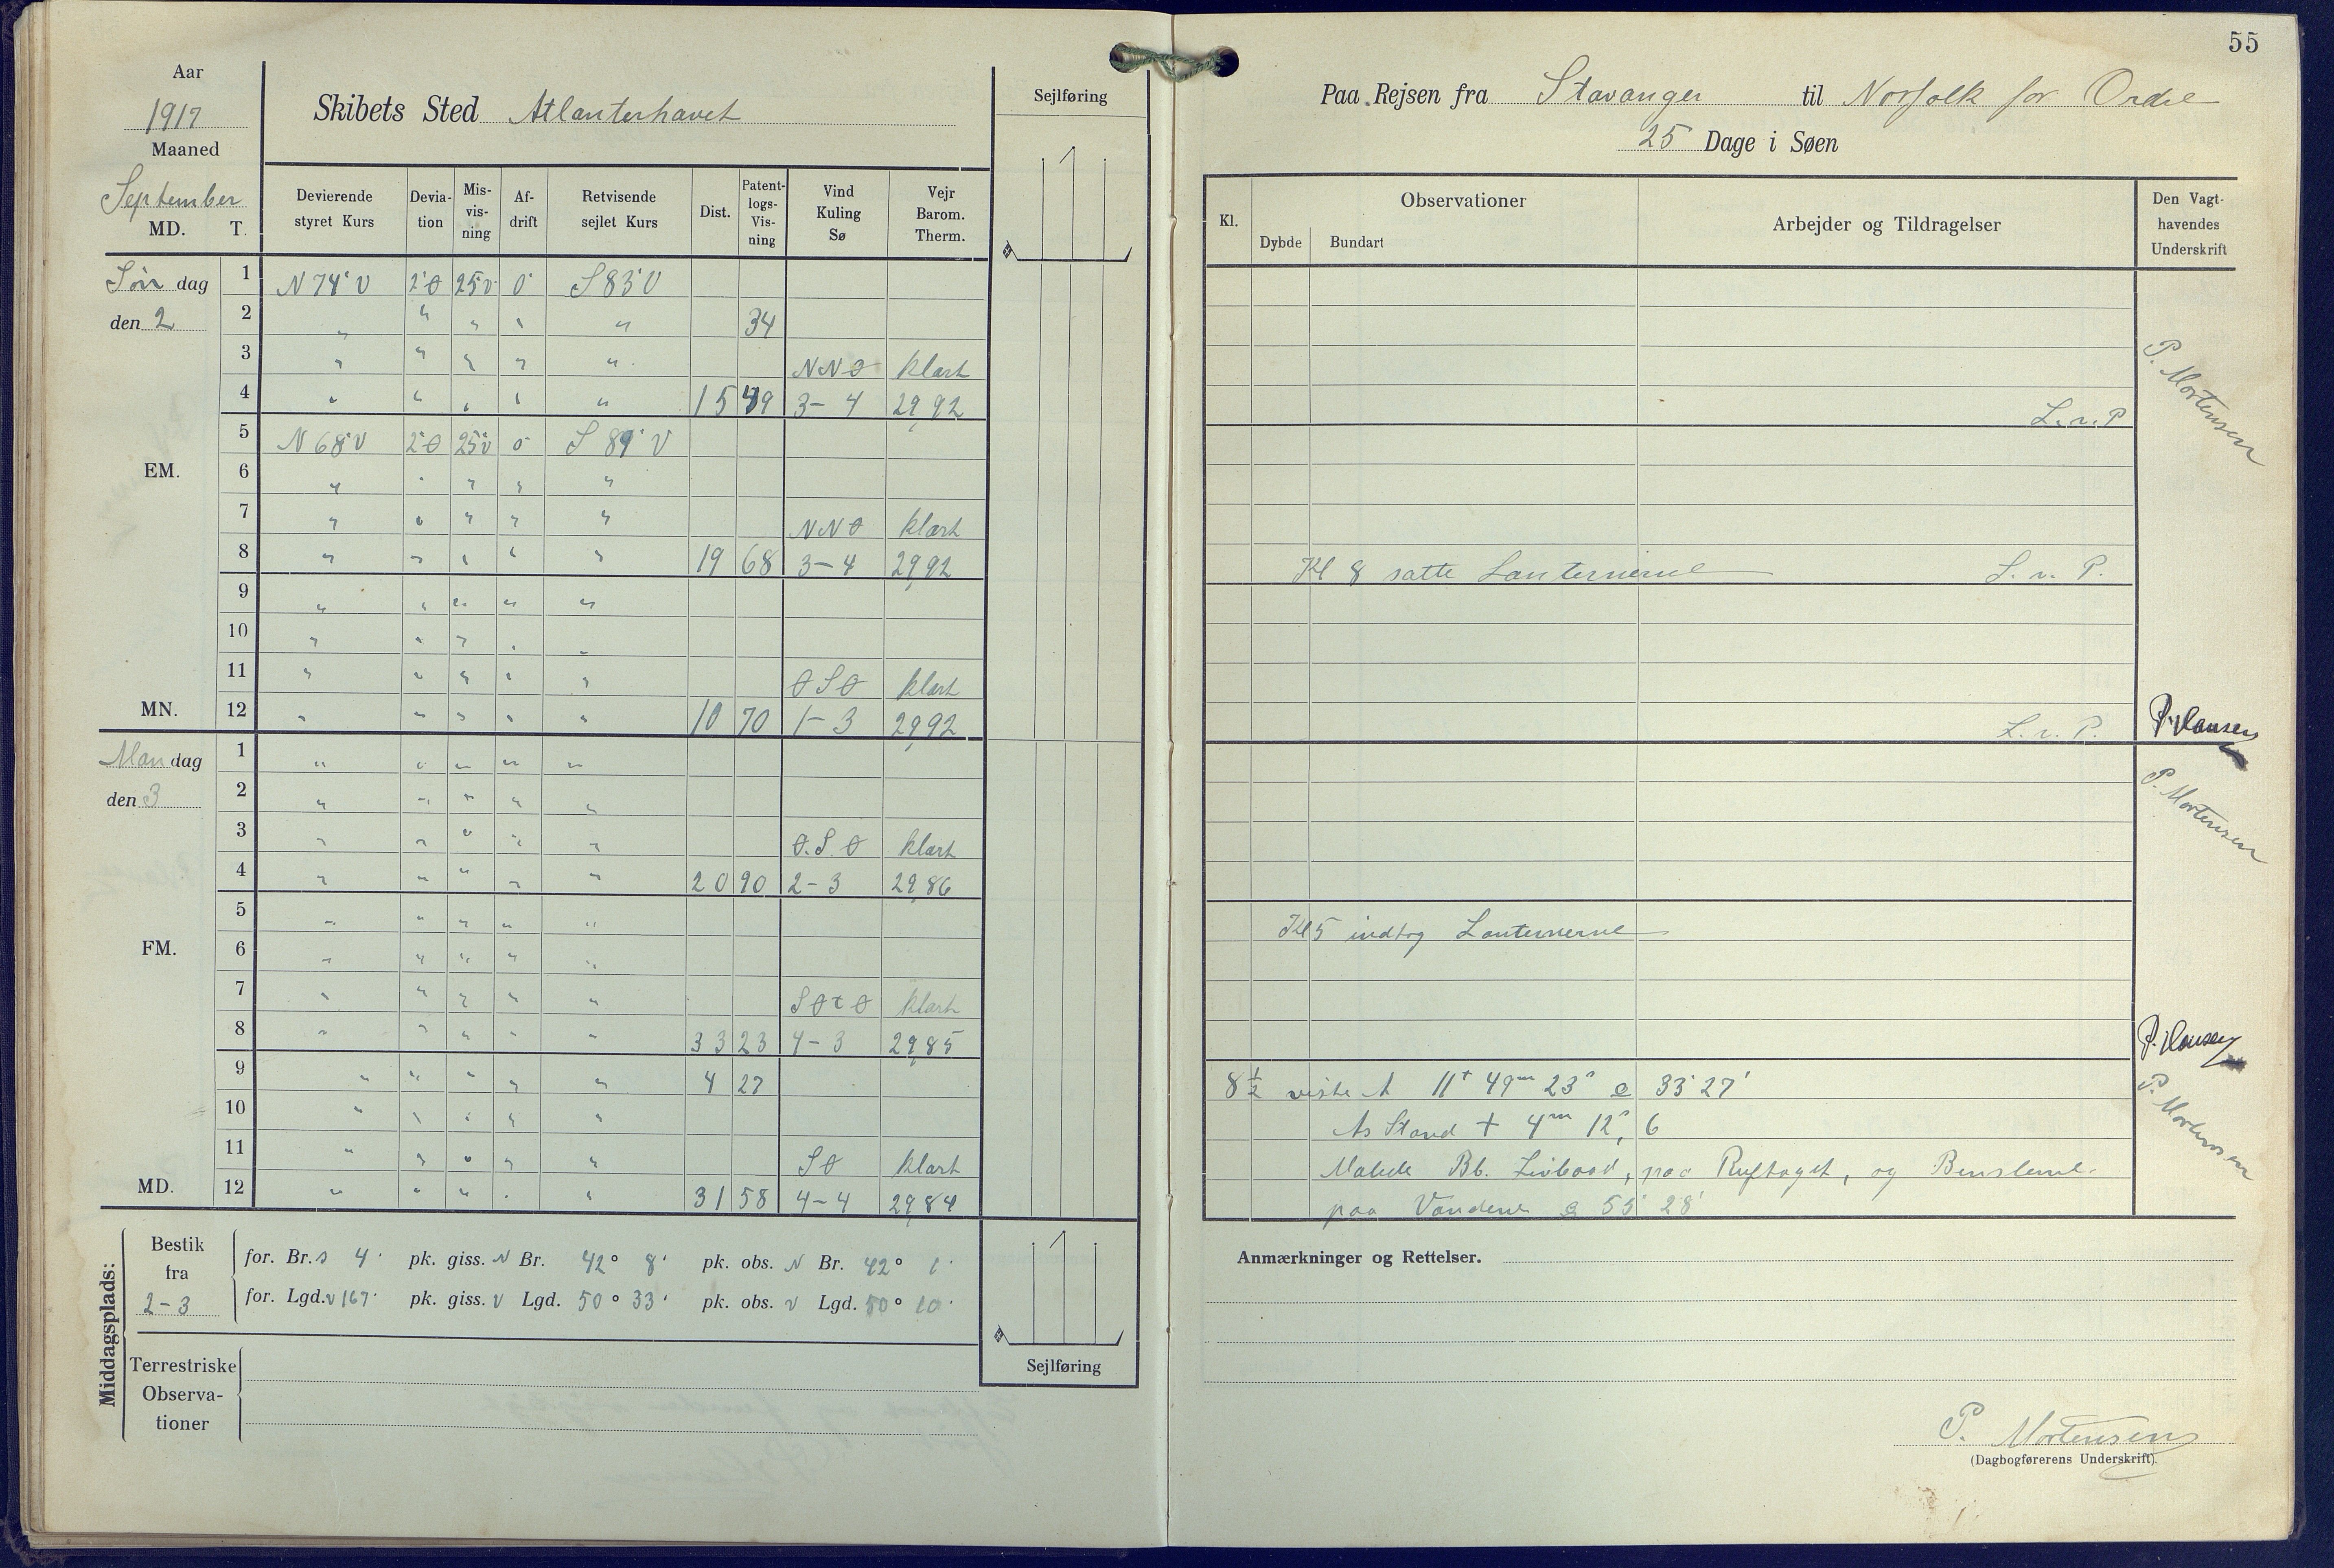 Aar
1917
Maaned
September
MD. T.
Skibets Sted Atlanterhavet
Sejlføring
Devierende styret Kurs
Devia-tion
Mis-vis-ning
Af-drift
Retvisende sejlet Kurs
Dist.
Patent-logs-Vis-ning
Vind Kuling Sø
Vejr Barom. Therm.
Søn dag 1 N 74° V 2°Ø 25°V 0° S 83° V
den 2 2 " " " " " 34
3 " " " " " NNØ klart
4 " " " " " 15 49 3-4 29,92
5 N 68° V 2°Ø 25°V 0° S 89° V
EM. 6 " " " " "
7 " " " " " NNØ klart
8 " " " " " 19 68 3-4 29,92
9 " " " " "
10 " " " " "
11 " " " " " ØSØ klart
MN. 12 " " " " " 10 70 1-3 29,92
Man dag 1 " " " " "
den 3 2 " " " " "
3 " " " " " Ø.S.Ø klart
4 " " " " " 20 90 2-3 29,86
5 " " " " "
FM. 6 " " " " "
7 " " " " " SØtØ klart
8 " " " " " 33 23 4-3 29,85
9 " " " " " 4 27
10 " " " " "
11 " " " " " SØ klart
MD. 12 " " " " " 31 58 4-4 29,84
Middagsplads:
Bestik fra 2-3
for. Br. S 4' pk. giss. N Br. 42° 8' pk. obs. N Br. 42° 1'
for. Lgd. V 167' pk. giss. V Lgd. 50° 33' pk. obs. V Lgd. 50° 10'
Terrestriske Observa-tioner
Sejlføring
55
Paa Rejsen fra Stavanger til Norfolk for Ordre
25 Dage i Søen
Kl.
Observationer
Dybde Bundart
Arbejder og Tildragelser
Den Vagt-havendes Underskrift
P. Mortensen
L. v. P
Kl 8 satte Lanternerne L. v. P.
L. v. P. P. Hansen
P. Mortensen
Kl 5 indtog Lanternerne
P. Hansen
8 1/2 viste A 11t 49m 23s 33° 27'
As Stand + 4m 12s, 6
P. Mortensen
Malede Bb. Livbaad, paa Ruftaget, og
paa 55° 28'
Anmærkninger og Rettelser.
P. Mortensen
(Dagbogførerens Underskrift).